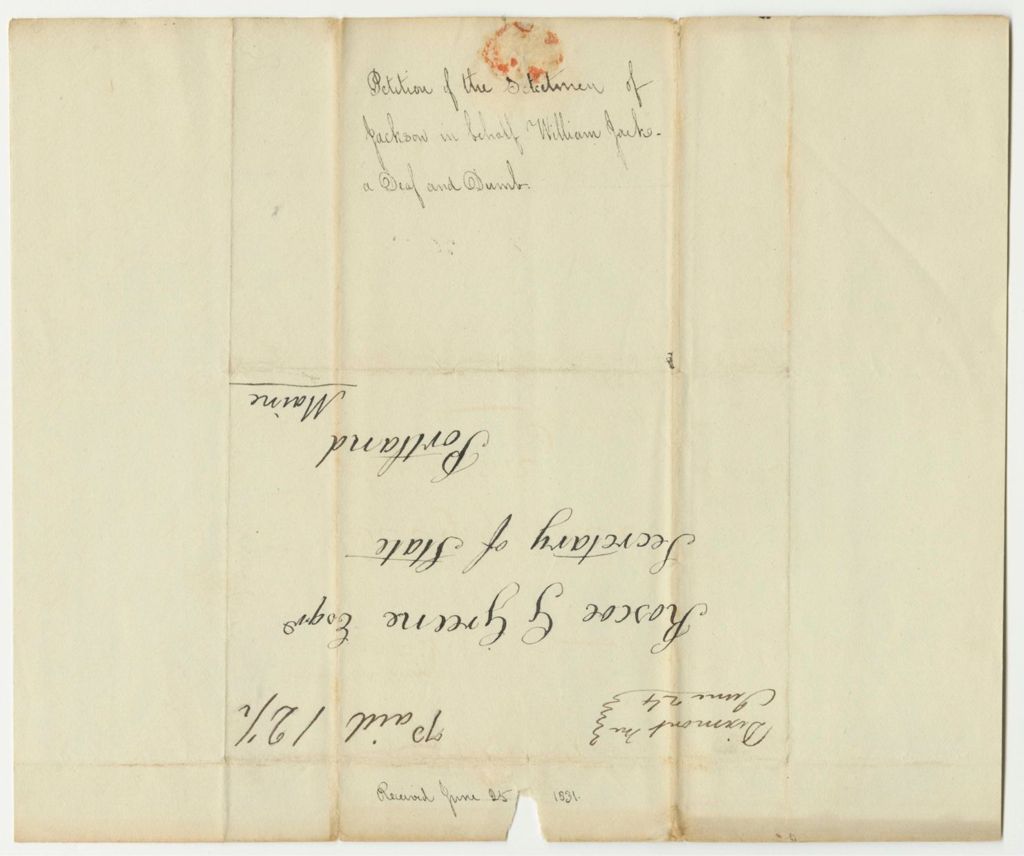 Petition of the Selectmen of
Jackson in behalf William Jack-
a Deaf and Dumb.
Maine
Portland
Secretary of State
Roscoe G Greene Esqr
Paid 12½
Dixmont Me
June 24
Received June 25 1831.